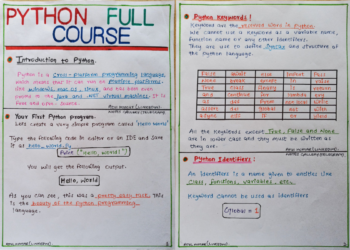 PYTHON FULL
COURSE
Introduction to Python.
Python is a Cross-platform programming language,
which means that it can run on multiple platforms
like windows, mac OS, Linux, and has even been
ported to the Java and .NET virtual machines. It is
free and open source.
Your First Python program.
Let's create a very simple program called "Hello World"
Type the following code in editor or an IDE and save
it as hello_world.py
Print ("Hello, world!")
You will get the following output:
Hello, world
As you can see, this was a pretty easy task, this is
the beauty of the Python programming
language.
Python Keywords:
Keywords are the reserved words in Python.
We cannot use a keyword as a variable name,
function name or any other identifiers.
They are use to define Syntax and structure of
the python language.
False await else import Pass
None break except in raise
True class finally is return
and continue for lambda try
as def from nonlocal while
assert del global not with
async elif if or yield
All the keywords except True, False and None
are in lower case and they must be written as
they are.
Python Identifiers:
An identifiers is a name given to entities like
class, functions, variables, etc.
Keyword cannot be used as identifiers